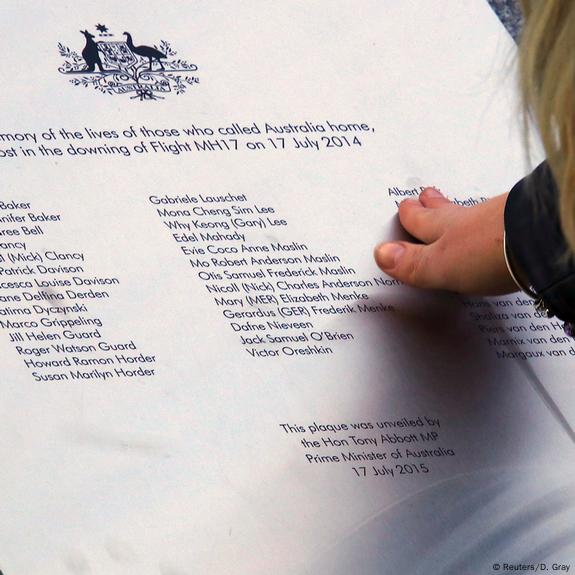 AUSTRALIA
mory of the lives of those who called Australia home,
ost in the downing of Flight MH17 on 17 July 2014
Baker
nnifer Baker
ree Bell
ancy
l (Mick) Clancy
Patrick Davison
ncesca Louise Davison
ane Delfina Derden
atima Dyczynski
Marco Grippeling
Jill Helen Guard
Roger Watson Guard
Howard Ramon Horder
Susan Marilyn Horder
Gabriele Lauschet
Mona Cheng Sim Lee
Why Keong (Gary) Lee
Edel Mahady
Evie Coco Anne Maslin
Mo Robert Anderson Maslin
Otis Samuel Frederick Maslin
Nicoll (Nick) Charles Anderson Norri
Mary (MER) Elizabeth Menke
Gerardus (GER) Frederik Menke
Dafne Nieveen
Jack Samuel O'Brien
Victor Oreshkin
Albert
Hans van den
Shaliza van de
Piers van den H
Marnix van den
Margaux van d
This plaque was unveiled by
the Hon Tony Abbott MP
Prime Minister of Australia
17 July 2015
© Reuters/D. Gray